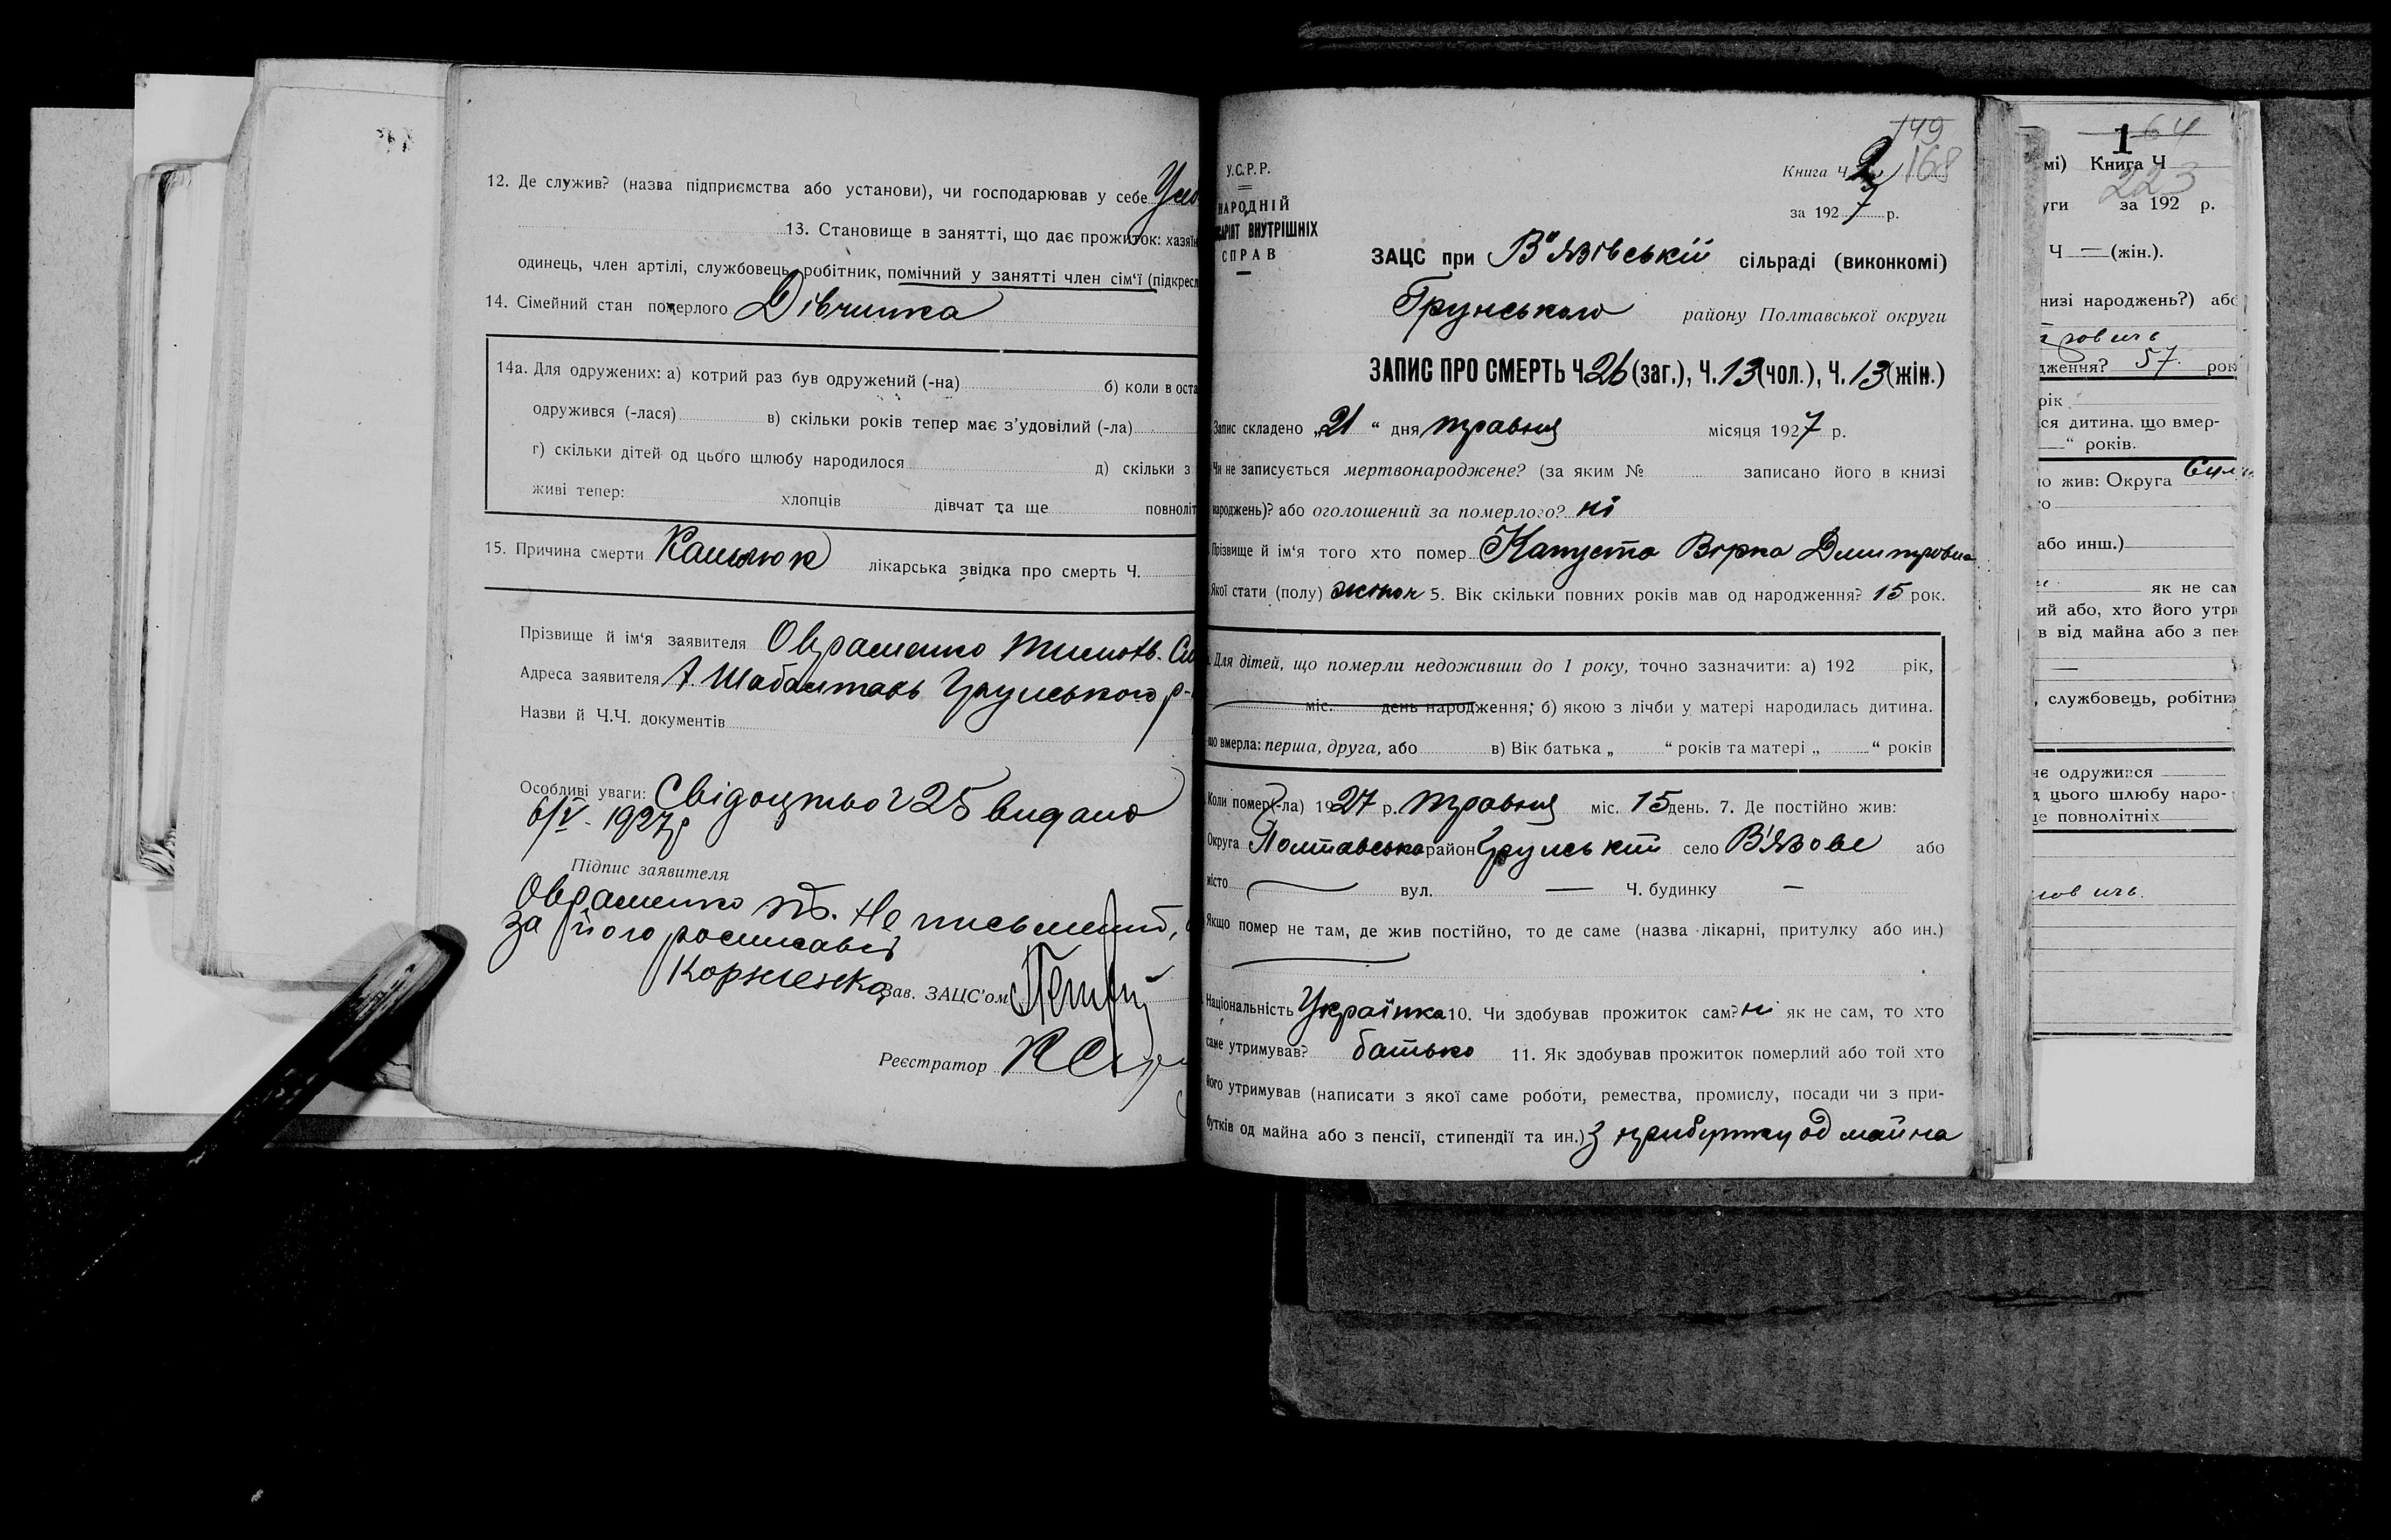 12. Де служив? (назва підприємства або установи), чи господарював у себе
13. Становище в занятті, що дає прожиток: хазяїн
одинець, член артілі, службовець, робітник, помічний у занятті член сім'ї (підкресл
14. Сімейний стан померлого Дівчинка
14а. Для одружених: а) котрий раз був одружений (-на) б) коли в оста
одружився (-лася) в) скільки років тепер має з'удовілий (-ла)
г) скільки дітей од цього щлюбу народилося д) скільки з
живі тепер: хлопців дівчат та ще повноліт
15. Причина смерти Кашлюк лікарська звідка про смерть Ч.
Прізвище й ім'я заявителя Овраменко
Адреса заявителя х Шабалтаєь Грунського р-
Назви й Ч.Ч. документів
Особливі уваги: Свідоцтво ч 25 видано
6/V - 1927 р
Підпис заявителя
Овраменко Не письмений,
за його росписавсь
Корнієнко
Зав. ЗАЦС'ом
Реєстратор
149
Книга Ч 2 168
за 1927 р.
У.С.Р.Р.
НАРОДНІЙ
САРІЯТ ВНУТРІШНІХ
СПРАВ
ЗАЦС при В'язівській сільраді (виконкомі)
Грунського району Полтавської округи
ЗАПИС ПРО СМЕРТЬ Ч. 26 (заг.), Ч. 13 (чол.), Ч. 13 (жін.)
Запис складено „21“ дня травня місяця 1927 р.
Чи не записується мертвонароджене? (за яким № записано його в книзі
народжень)? або оголошений за померлого? ні
Прізвище й ім'я того хто помер Капуста Вірка Дмитровна
Якої стати (полу) жіноч 5. Вік скільки повних років мав од народження? 15 рок.
Для дітей, що померли недоживши до 1 року, точно зазначити: а) 192 рік,
міс. день народження; б) якою з лічби у матері народилась дитина.
що вмерла: перша, друга, або в) Вік батька „ “ років та матері „ “ років
Коли помер (-ла) 1927 р. травня міс. 15 день. 7. Де постійно жив:
Округа Полтавська район Грунський село В'язове або
місто вул. — Ч. будинку —
Якщо помер не там, де жив постійно, то де саме (назва лікарні, притулку або ин.)
Національність Українка 10. Чи здобував прожиток сам? ні як не сам, то хто
саме утримував? батько 11. Як здобував прожиток померлий або той хто
його утримував (написати з якої саме роботи, ремества, промислу, посади чи з при-
бутків од майна або з пенсії, стипендії та ин.) З прибутку од майна
1 64
мі) Книга Ч
223
уги за 192 р.
Ч — (жін.).
низі народжень?) або
дження? 57 рок
рік
ся дитина, що вмер-
—“ років.
о жив: Округа
го
або инш.)
як не сам
ий або, хто його утри
в від майна або з пен
—
, службовець, робітни
не одружився
д цього шлюбу наро-
ще повнолітніх